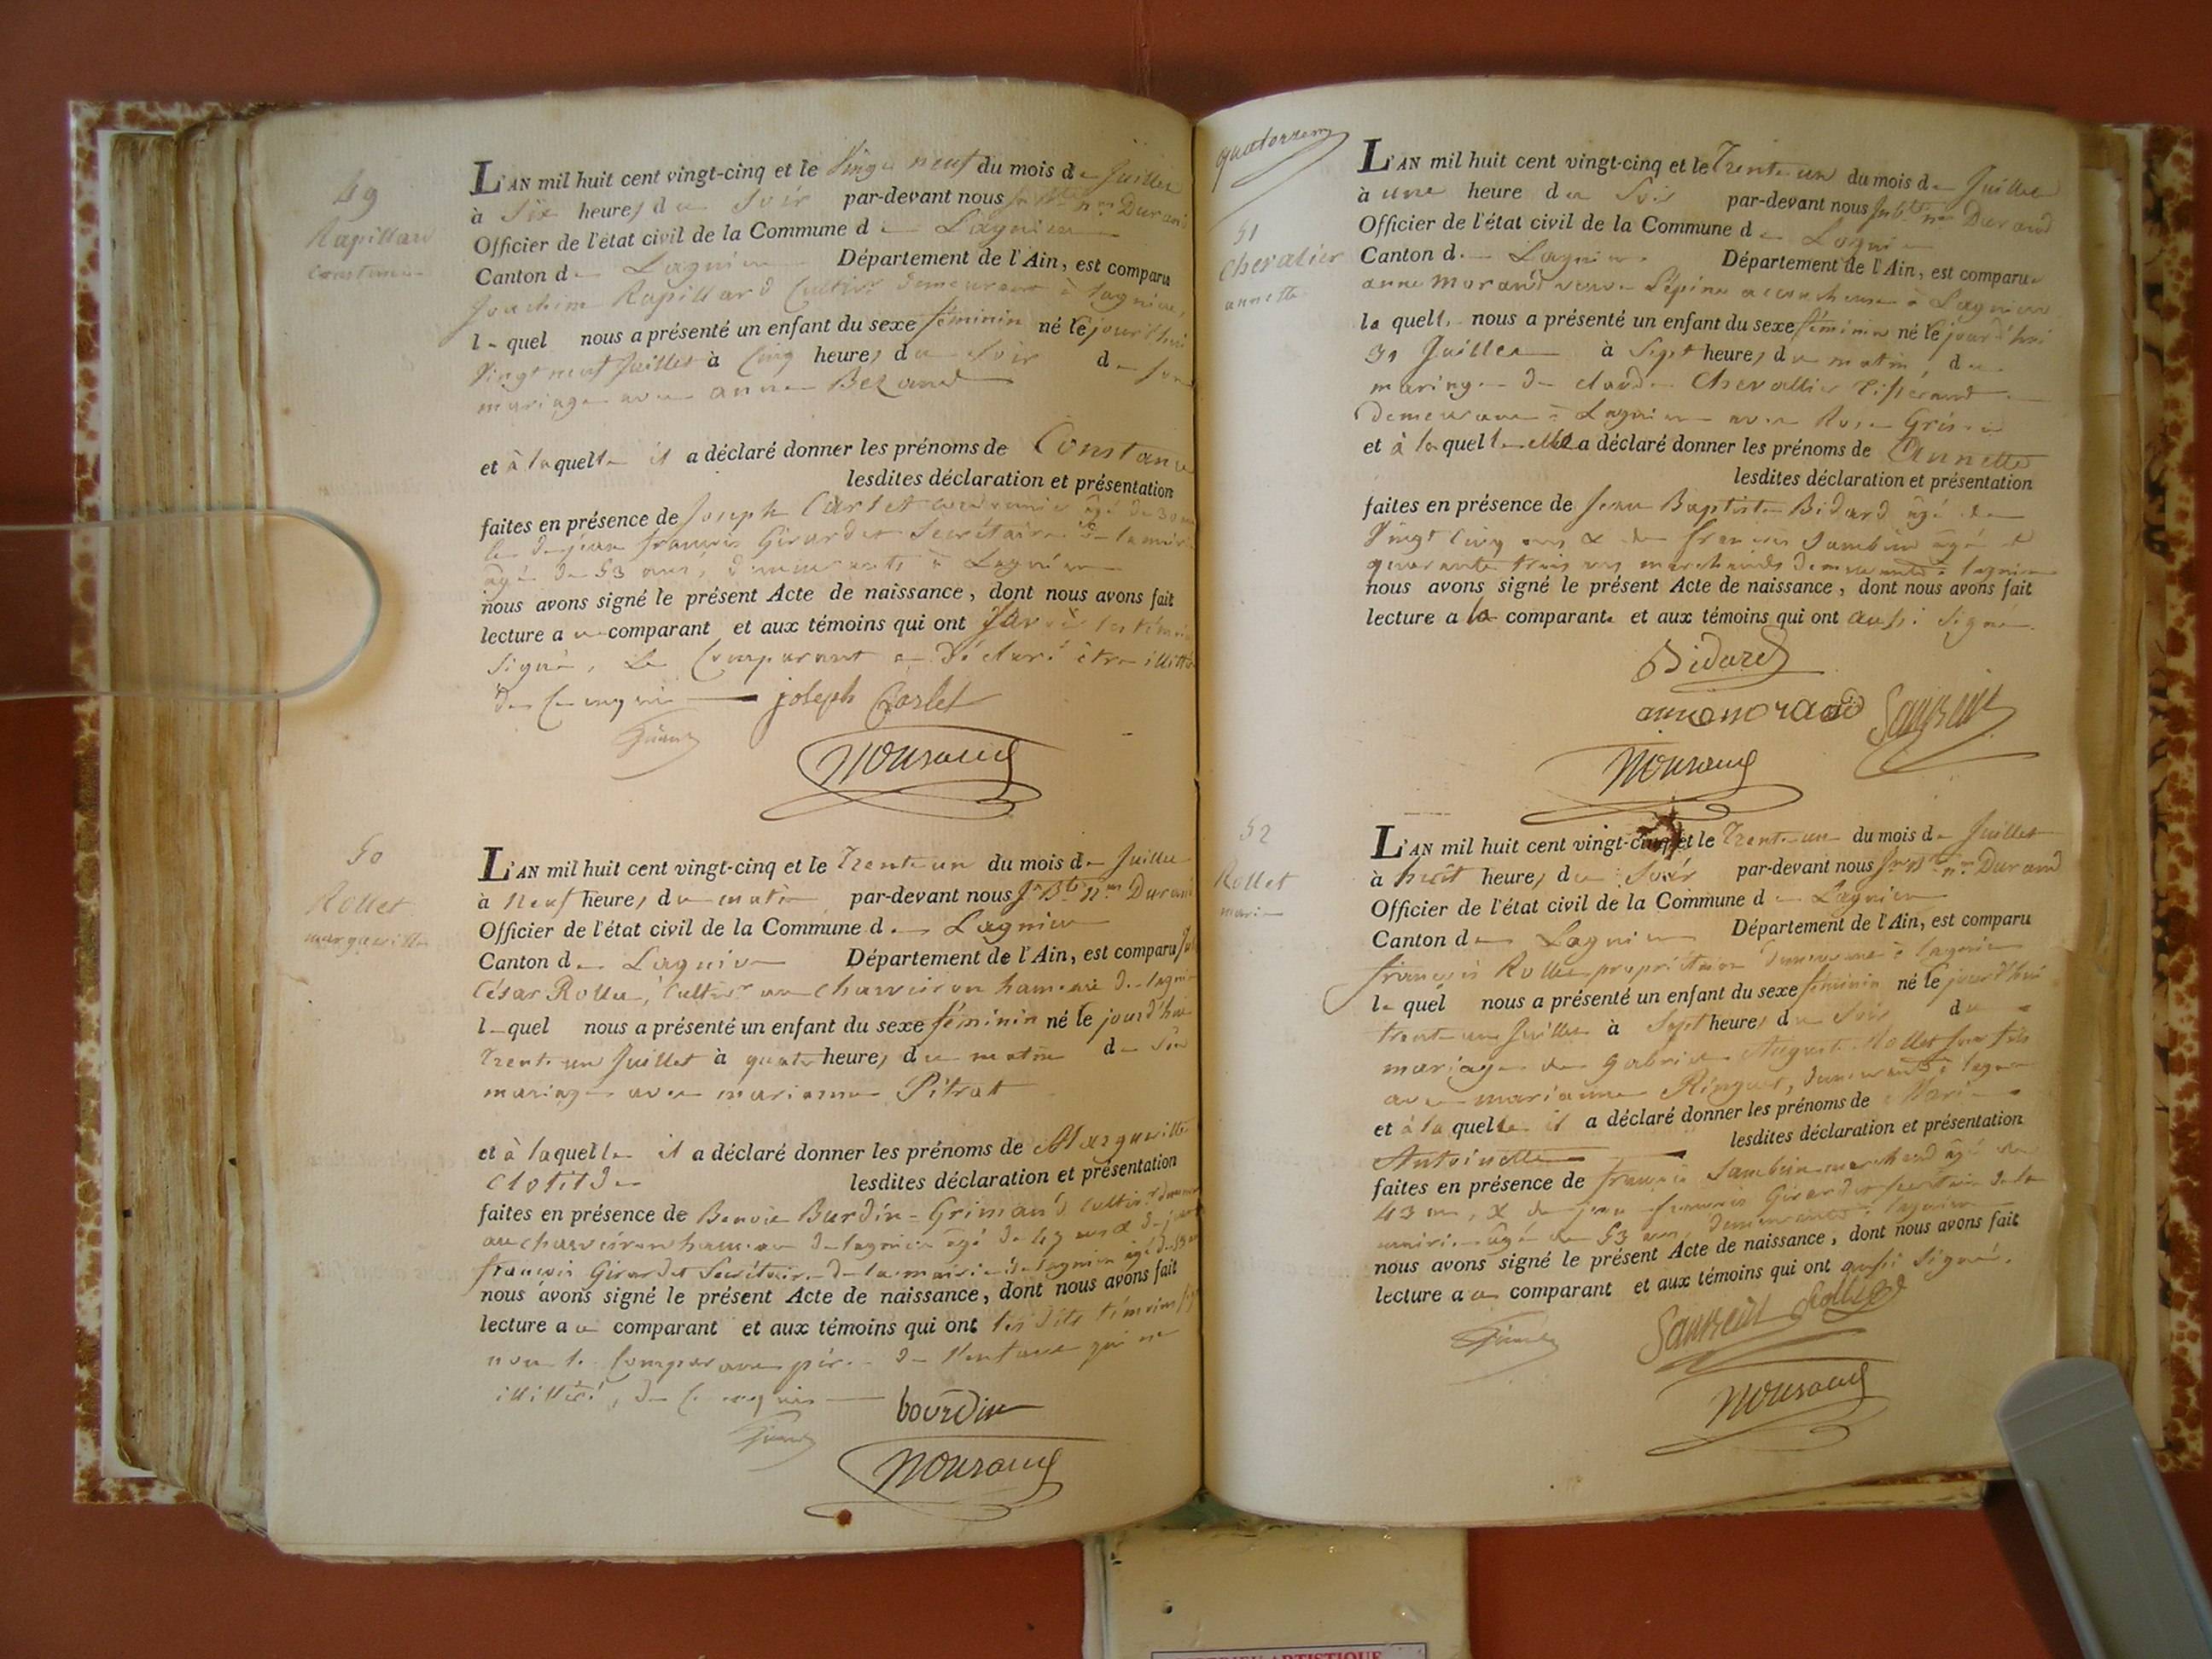 49
Rapillard
Constance
L'AN mil huit cent vingt-cinq et le Vingt neuf du mois de Juillet
à Six heures du Soir par-devant nous Durand
Officier de l'état civil de la Commune de Lagnieu
Canton de Lagnieu Département de l'Ain, est comparu
Joachim Rapillard Cultivr demeurant à Lagnieu,
lequel nous a présenté un enfant du sexe féminin né le jourd'hui
Vingt neuf Juillet à Cinq heures du Soir de son
mariage avec anne
et à laquelle il a déclaré donner les prénoms de Constance
lesdites déclaration et présentation
faites en présence de Joseph Carlet âgé de 30 ans
françois Girardet Secrétaire de la mairie
âgé de 53 ans, demeurants à Lagnieu
nous avons signé le présent Acte de naissance, dont nous avons fait
lecture au comparant et aux témoins qui ont les témoins
Signé, Le Comparant a Déclaré être illittéré
De Ce enquis joseph Carlet
50
Rollet
margueritte
L'AN mil huit cent vingt-cinq et le Trente un du mois de Juillet
à Neuf heures du matin par-devant nous Jn Bte Durand
Officier de l'état civil de la Commune de Lagnieu
Canton de Lagnieu Département de l'Ain, est comparu
César Rollet, Cultivr au Charveiron hameau de Lagnieu
lequel nous a présenté un enfant du sexe féminin né le jourd'hui
Trente un Juillet à quatre heures du matin de Son
mariage avec marianne Pitrat
et à laquelle il a déclaré donner les prénoms de Margueritte
Clotilde lesdites déclaration et présentation
faites en présence de Benoit Burdin-Grimand Cultivr
au Charveiron hameau de Lagnieu âgé de ans & de
françois Girardet Secrétaire de la mairie de Lagnieu âgé de 53 ans
nous avons signé le présent Acte de naissance, dont nous avons fait
lecture au comparant et aux témoins qui ont les dits témoins
non le Comparant père de l'enfant qui est
illittéré, de Ce enquis
bourdin
quatorze
51
Chevalier
annette
L'AN mil huit cent vingt-cinq et le Trente un du mois de Juillet
à une heure du Soir par-devant nous Durand
Officier de l'état civil de la Commune de Lagnieu
Canton de Lagnieu Département de l'Ain, est comparue
anne Morand veuve Lépine accoucheuse à Lagnieu
laquelle nous a présenté un enfant du sexe féminin né le jourd'hui
31 Juillet à Sept heures du matin, du
mariage de Claude Chevallier Tisserand
demeurant à Lagnieu avec Rose
et à laquelle elle a déclaré donner les prénoms de Annette
lesdites déclaration et présentation
faites en présence de Jean Baptiste Bidard âgé de
Vingt Cinq ans & de françois Sambin âgé de
quarante trois ans marchands demeurants à Lagnieu
nous avons signé le présent Acte de naissance, dont nous avons fait
lecture a la comparante et aux témoins qui ont aussi Signé
Bidard
anne morand
52
Rollet
marie
L'AN mil huit cent vingt-cinq et le Trente un du mois de Juillet
à huit heures du Soir par-devant nous Durand
Officier de l'état civil de la Commune de Lagnieu
Canton de Lagnieu Département de l'Ain, est comparu
françois Rollet propriétaire demeurant à Lagnieu
lequel nous a présenté un enfant du sexe féminin né le jourd'hui
trente un Juillet à Sept heures du Soir du
mariage de gabriel Auguste Rollet son fils
avec marianne Ringuet, demeurants à Lagnieu
et à laquelle il a déclaré donner les prénoms de Marie
Antoinette lesdites déclaration et présentation
faites en présence de françois Sambin marchand âgé de
43 ans, & de jean françois Girardet Secrétaire de la
mairie âgé de 53 ans, demeurants à Lagnieu
nous avons signé le présent Acte de naissance, dont nous avons fait
lecture au comparant et aux témoins qui ont aussi Signé.
ARTISTIQUE